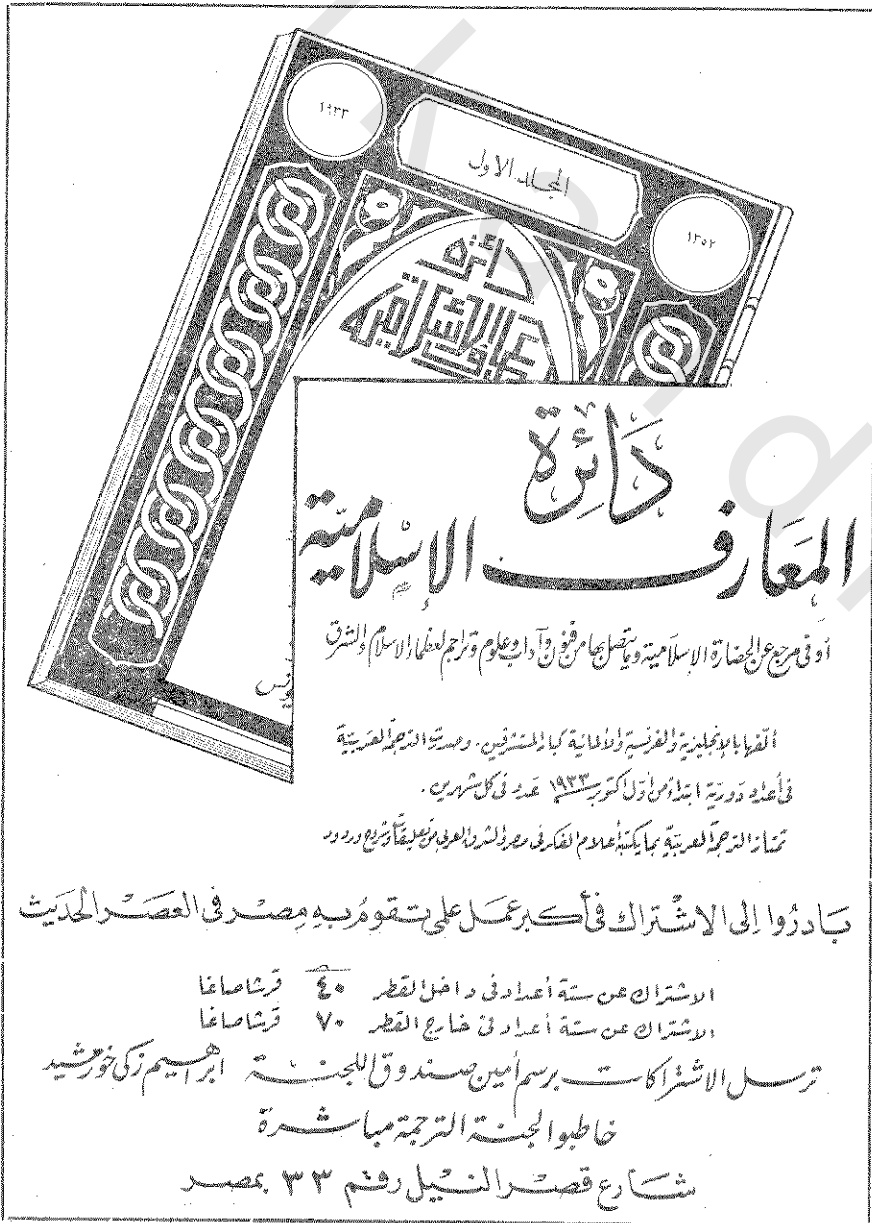 ١٩٣٣
المجلد الاول
١٣٥٢
دائرة
المعارف الإسلامية
دَائِرة
المعَارف الإسْلاميّة
أوفى مرجع عن الحضارة الإسلامية وما يتصل بها من فنون وآداب وعلوم وتراجم لعظماء الاسلام والشرق
ألفها بالإنجليزية والفرنسية والألمانية كبار المستشرقين . وصدرت الترجمة العربية
فى أعداد دورية ابتداء من أول أكتوبر ١٩٣٣ عدد فى كل شهرين .
تمتاز الترجمة العربية بما يكتبه أعلام الفكر فى مصر والشرق العربى من تعليقات وشروح وردود
بَادرُوا إلى الاشْتراك فى أكبر عمَل علمى تقومُ بهِ مِصْر فى العصَر الحَديث
الاشتراك عن ستة أعداد فى داخل القطر ٤٠ قرشا صاغا
الاشتراك عن ستة أعداد فى خارج القطر ٧٠ قرشا صاغا
ترسل الاشتراكات برسم أمين صندوق اللجنة ابراهيم زكى خورشيد
خاطبوا لجنة الترجمة مباشرة
شارع قصر النيل رقم ٣٣ بمصر